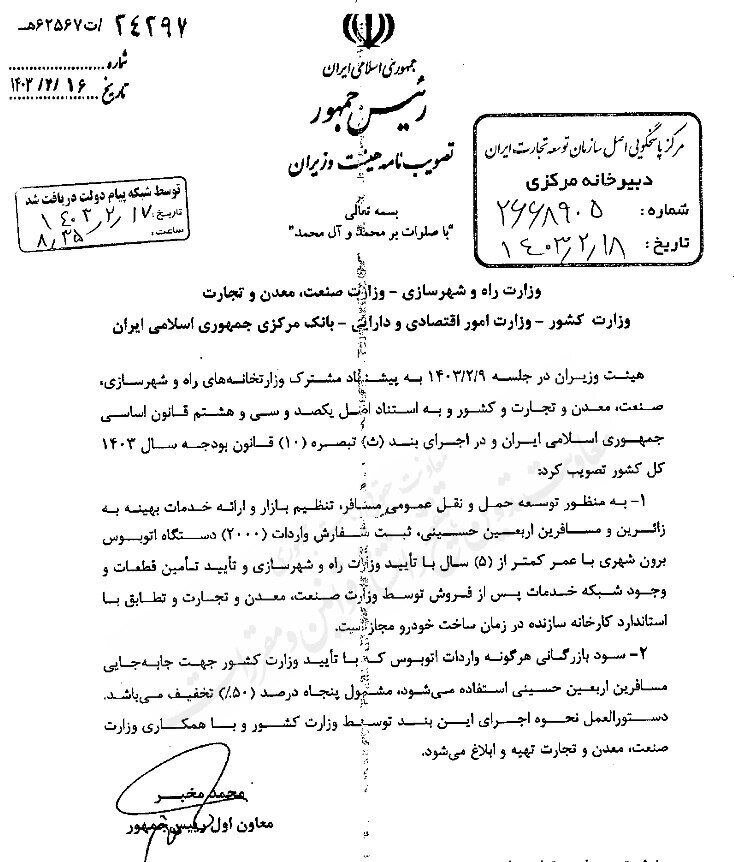 ۲۴۲۹۷ /ت۶۲۵۶۷هـ
شماره
تاریخ ۱۴۰۳/۲/۱۶
جمهوری اسلامی ایران
رئیس جمهور
تصویب نامه هیئت وزیران
بسمه تعالی
"با صلوات بر محمد و آل محمد"
توسط شبکه پیام دولت دریافت شد
تاریخ: ۱۴۰۳/۲/۱۷
ساعت: ۸/۳۵
مرکز پاسخگویی اصل سازمان توسعه تجارت ایران
دبیرخانه مرکزی
شماره: ۲۶۶۸۹۰۵
تاریخ: ۱۴۰۳/۲/۱۸
وزارت راه و شهرسازی – وزارت صنعت، معدن و تجارت
وزارت کشور – وزارت امور اقتصادی و دارایی – بانک مرکزی جمهوری اسلامی ایران
هیئت وزیران در جلسه ۱۴۰۳/۲/۹ به پیشنهاد مشترک وزارتخانه‌های راه و شهرسازی،
صنعت، معدن و تجارت و کشور و به استناد اصل یکصد و سی و هشتم قانون اساسی
جمهوری اسلامی ایران و در اجرای بند (ث) تبصره (۱۰) قانون بودجه سال ۱۴۰۳
کل کشور تصویب کرد:
۱- به منظور توسعه حمل و نقل عمومی مسافر، تنظیم بازار و ارائه خدمات بهینه به
زائرین و مسافرین اربعین حسینی، ثبت سفارش واردات (۲۰۰۰) دستگاه اتوبوس
برون شهری با عمر کمتر از (۵) سال با تأیید وزارت راه و شهرسازی و تأیید تأمین قطعات و
وجود شبکه خدمات پس از فروش توسط وزارت صنعت، معدن و تجارت و تطابق با
استاندارد کارخانه سازنده در زمان ساخت خودرو مجاز است.
۲- سود بازرگانی هرگونه واردات اتوبوس که با تأیید وزارت کشور جهت جابه‌جایی
مسافرین اربعین حسینی استفاده می‌شود، مشمول پنجاه درصد (۵۰٪) تخفیف می‌باشد.
دستورالعمل نحوه اجرای این بند توسط وزارت کشور و با همکاری وزارت
صنعت، معدن و تجارت تهیه و ابلاغ می‌شود.
محمد مخبر
معاون اول رئیس جمهور